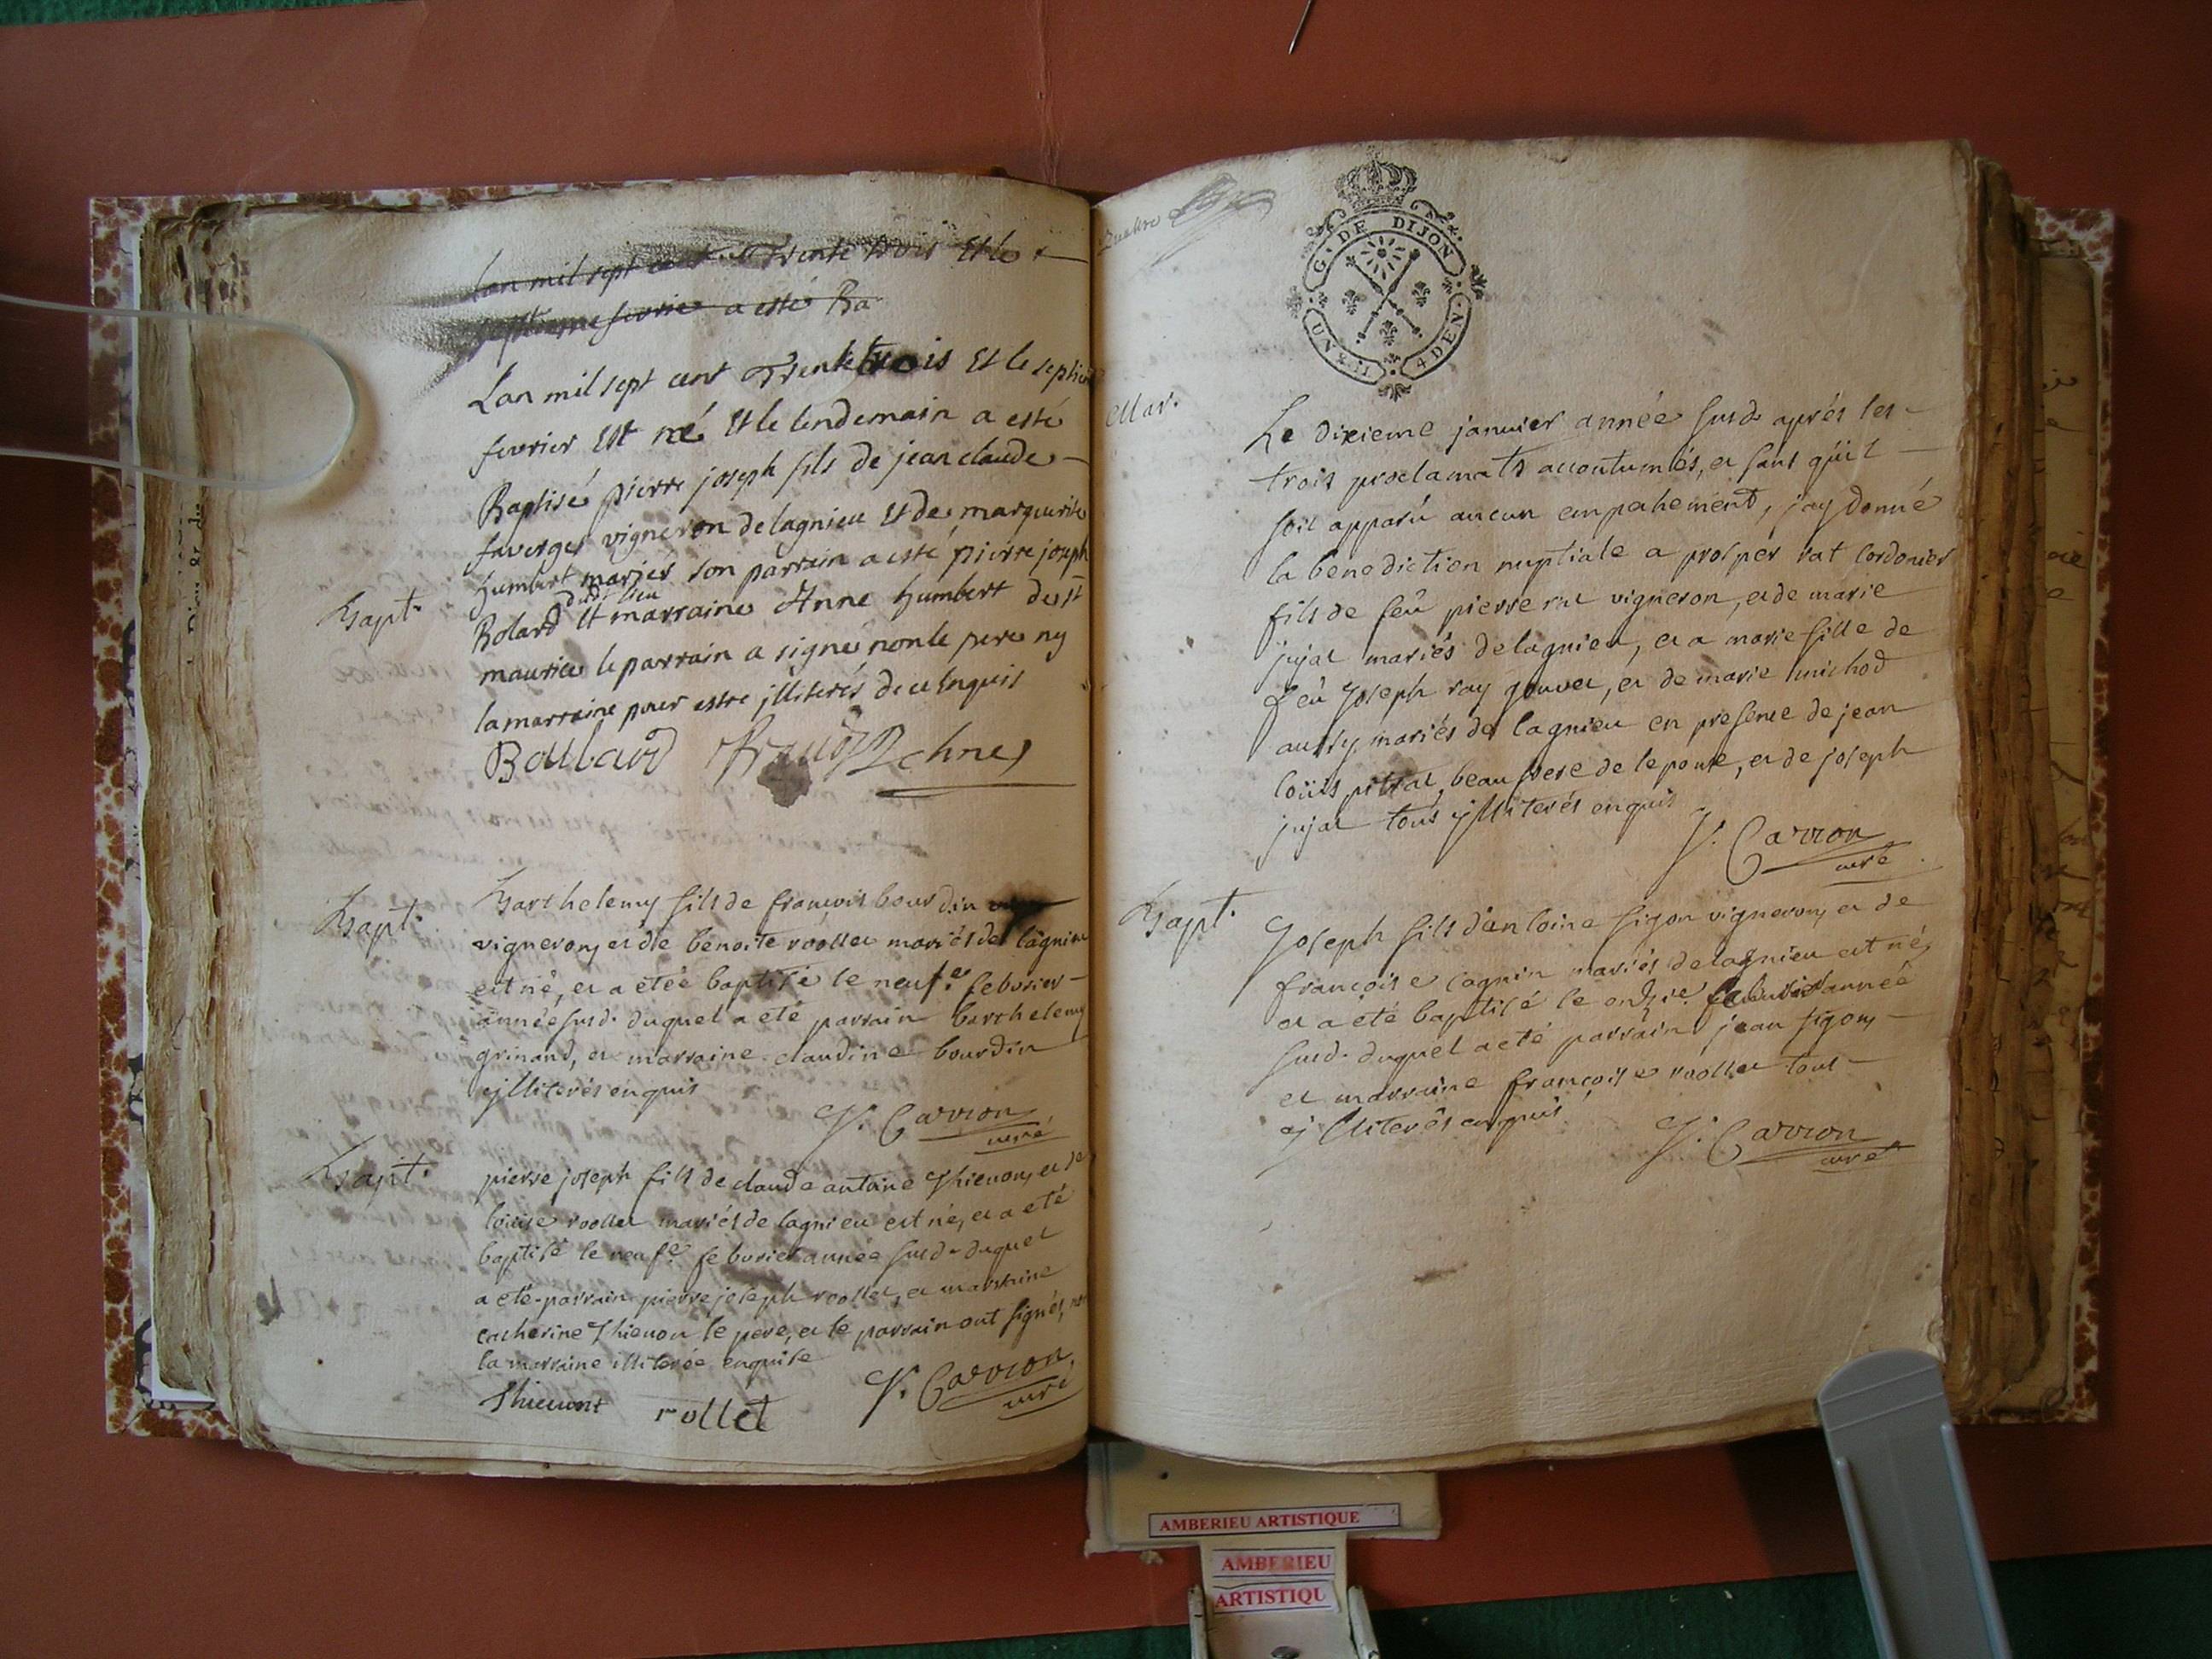 Lan mil sept cent Trente trois Et le
septieme fevrier a esté Ba
Lan mil sept cent Trente trois Et le septiem
fevrier Est né Et le lendemain a esté
Baptisé pierre joseph fils de jean claude
faverges vigneron de lagnieu Et de marguerite
humbert mariés son parrain a esté pierre joseph
dudt lieu
Bapt.
Bolard Et marraine Anne humbert de st
maurice le parrain a signé non le pere ny
la marraine pour estre jlliterés de ce Enquis
Boulard
Bapt.
Barthelemy fils de françois bourdin
vigneron, et de benoite roollet mariés de lagnieu
est né, et a etée baptisé le neuf.e feburier
année susd. duquel a eté parrain barthelemy
grinand, et marraine claudine bourdin
jlliterés enquis
J. Carrion
curé
Bapt.
pierre joseph fils de claude antoine Thienon, et de
louise roollet mariés de lagnieu est né, et a eté
baptisé le neuf.e feburier année susd. duquel
a eté parrain pierre joseph roollet, et marraine
catherine Thienon le pere, et le parrain ont signés, non
la marraine illiterée enquise
Thienont rollet
J. Carrion
curé
G. DE DIJON
UN S. II 4 DEN.
Mar.
Le dixieme janvier année susd. aprés les
trois proclamats accoutumés, et sans qu'il
soit apparû aucun empechement, j'ay donné
la benediction nuptiale a prosper rat Cordonier
fils de feû pierre rat vigneron, et de marie
jujat mariés de lagnieu, et a marie fille de
feû Joseph ray gouvet, et de marie michod
aussy mariés de lagnieu en presence de jean
loüis pitrat beau frere de lepouse, et de joseph
jujat tous jlliterés enquis
J. Carrion
curé
Bapt.
Joseph fils d'antoine figon vigneron, et de
françoise cagnin mariés de lagnieu est né,
et a eté baptisé le onzie. feburier année
susd. duquel a eté parrain jean figon,
et marraine françoise roollet tous
jlliterés enquis
J. Carrion
curé
AMBERIEU ARTISTIQUE
AMBERIEU
ARTISTIQU